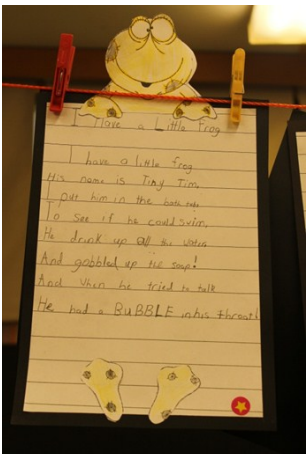 I Have a Little Frog
I have a little frog
His name is Tiny Tim,
I put him in the bath tub
To see if he could swim,
He drink up all the water
And gobbled up the soap!
And when he tried to talk
He had a BUBBLE in his throat!